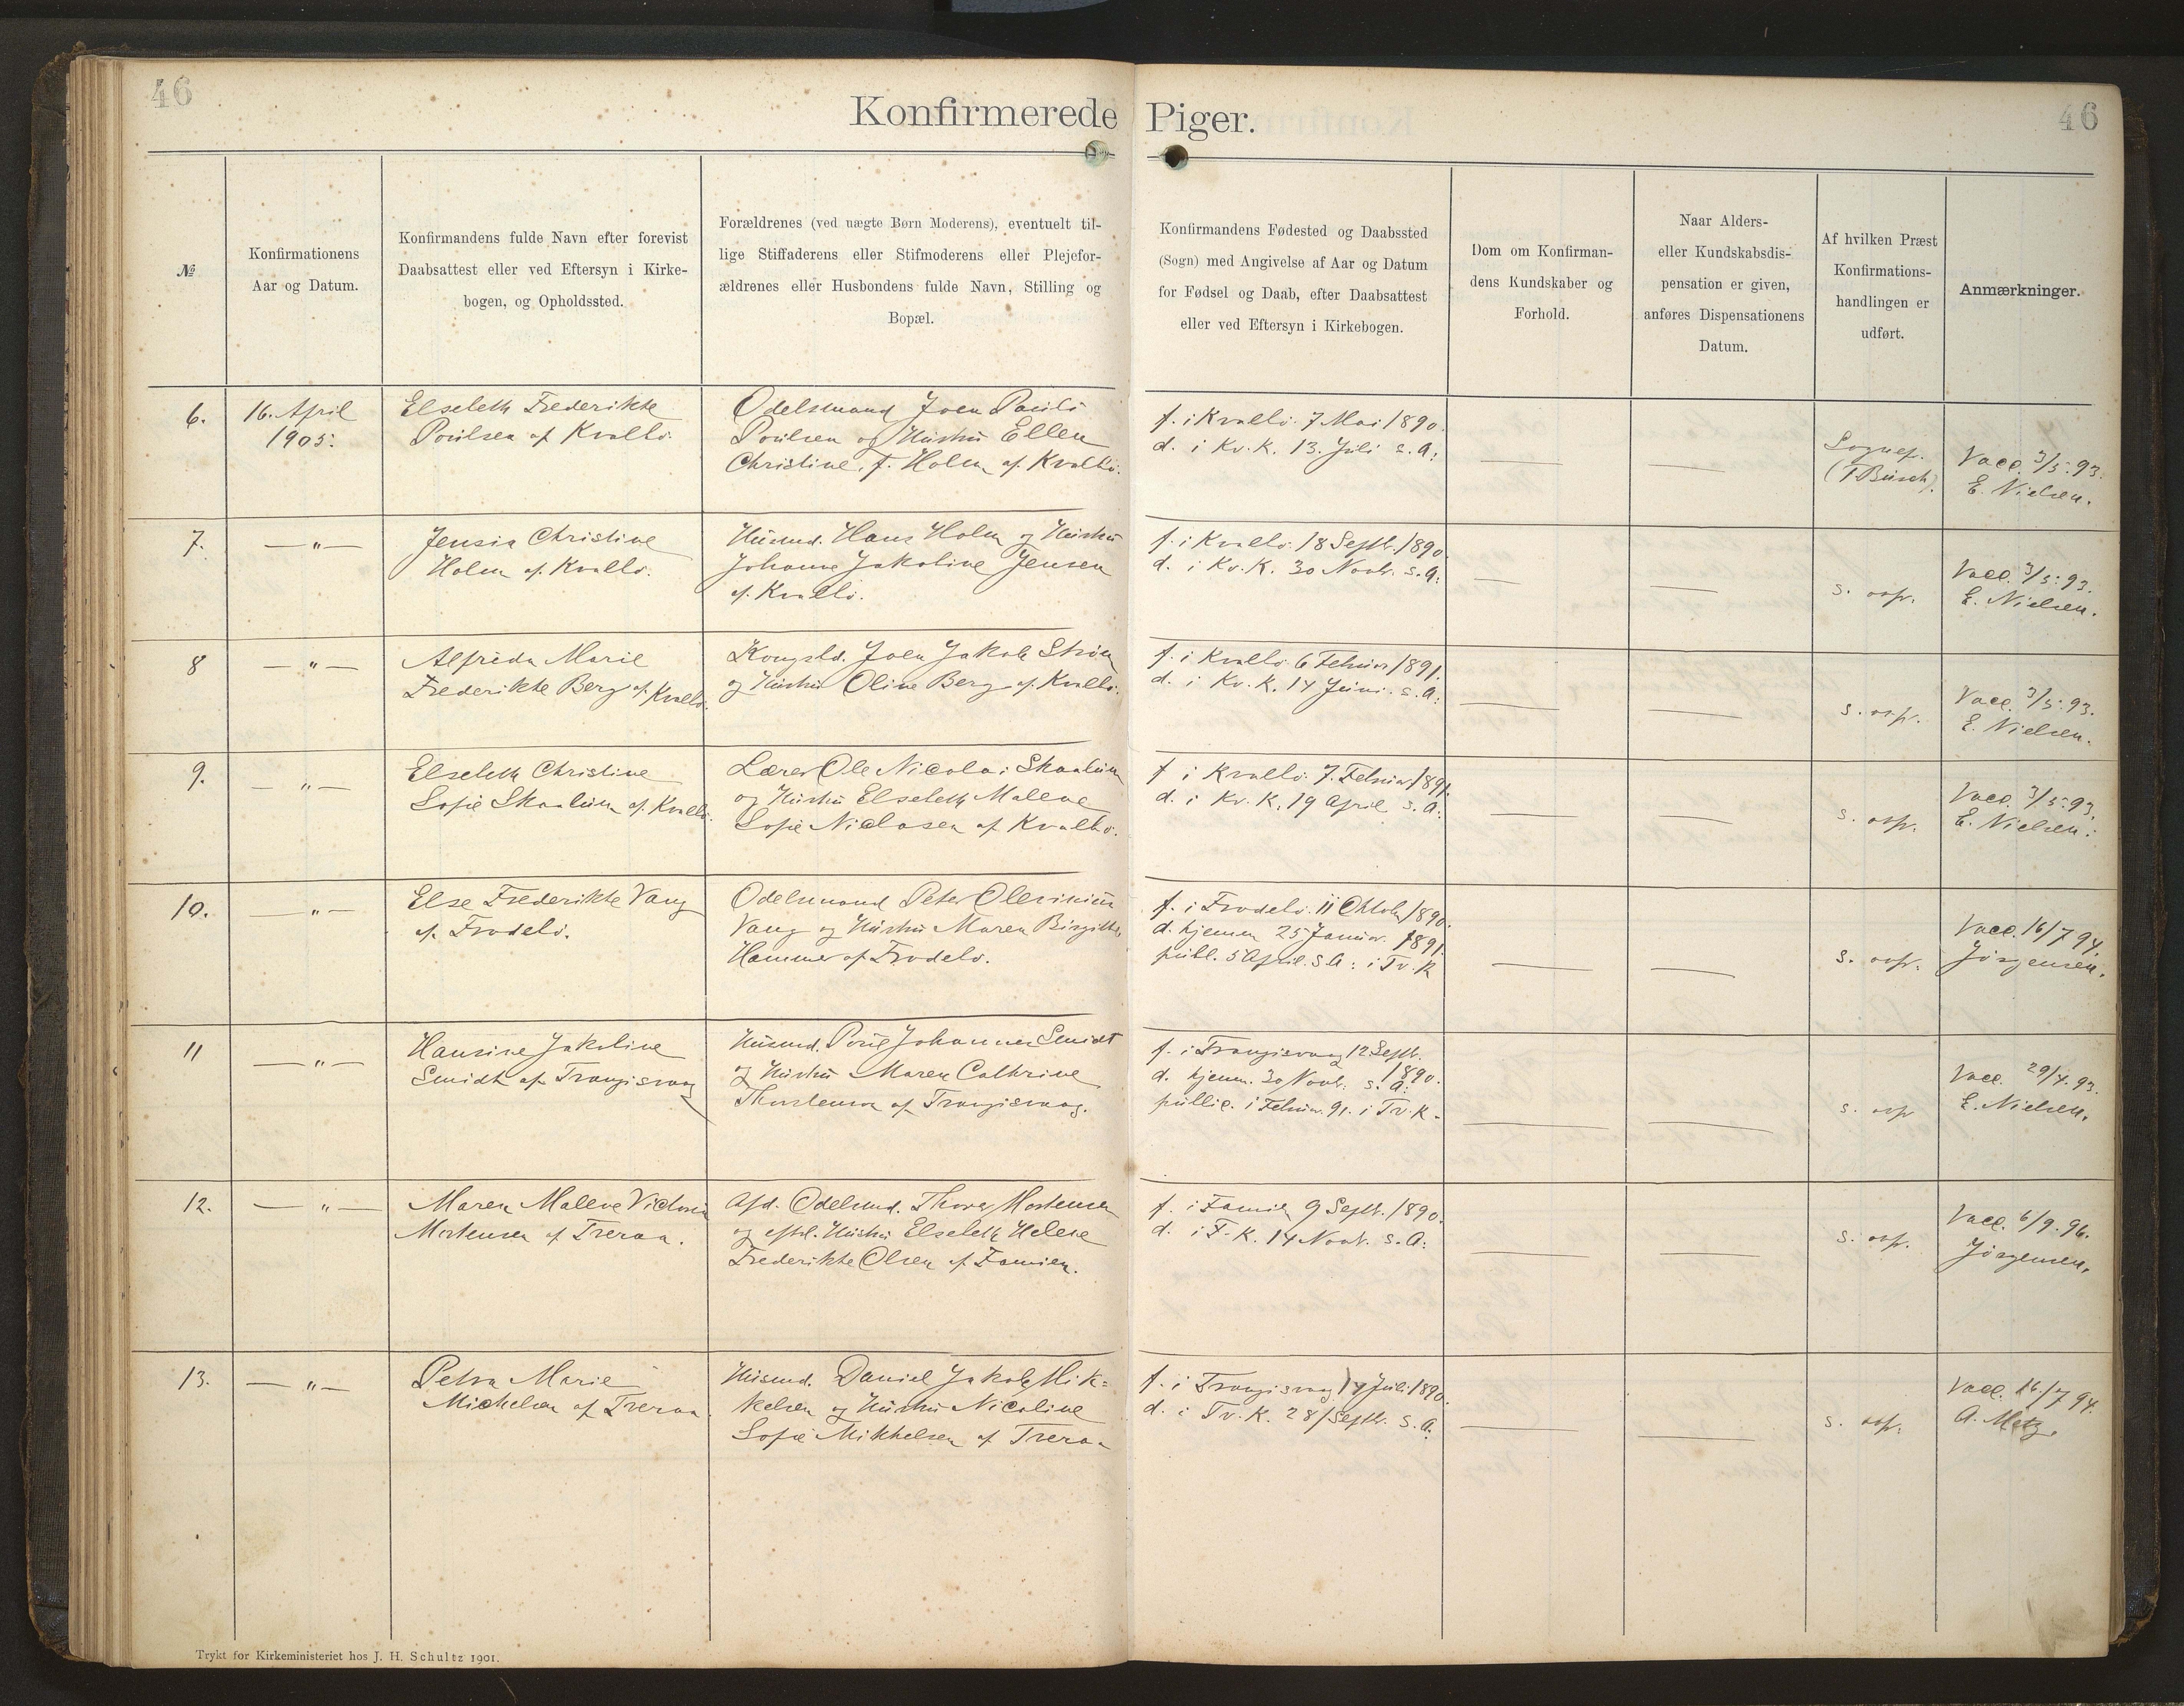 46
46
Konfirmerede Piger.
№
Konfirmationens
Aar og Datum.
Konfirmandens fulde Navn efter forevist
Daabsattest eller ved Eftersyn i Kirke-
bogen, og Opholdssted.
Forældrenes (ved uægte Børn Moderens), eventuelt til-
lige Stiffaderens eller Stifmoderens eller Plejefor-
ældrenes eller Husbondens fulde Navn, Stilling og
Bopæl.
Konfirmandens Fødested og Daabssted
(Sogn) med Angivelse af Aar og Datum
for Fødsel og Daab, efter Daabsattest
eller ved Eftersyn i Kirkebogen.
Dom om Konfirman-
dens Kundskaber og
Forhold.
Naar Alders-
eller Kundskabsdis-
pensation er given,
anføres Dispensationens
Datum.
Af hvilken Præst
Konfirmations-
handlingen er
udført.
Anmærkninger.
6.
16. April
1905.
Elsebeth Frederikke
Poulsen af Kvalbø.
Odelsmand Joen Pauli
Poulsen og Hustru Ellen
Christine, f. Holm af Kvalbø.
f. i Kvalbø. 7 Mai 1890.
d. i Kv. K. 13. Juli s. A:
—
—
Sognep.
(T Busch).
Vacc. 3/5. 93.
E. Nielsen.
7.
— " —
Jensia Christine
Holm af Kvalbø.
Husmd. Hans Holm og Hustru
Johanne Jakoline Jensen
af Kvalbø.
f. i Kvalbø. 18 Septb. 1890.
d. i Kv. K. 30 Novb. s. A:
—
—
s. ovfr.
Vacc. 3/5. 93.
E. Nielsen.
8
— " —
Alfrida Marie
Frederikke Berg af Kvalbø.
Kongsbd. Joen Jakob Strøm
og Hustru Oline Berg af Kvalbø.
f. i Kvalbø 6 Februar 1891.
d. i Kv. K. 14 Juni. s. A:
—
—
s. ovfr.
Vacc. 3/5. 93.
E. Nielsen.
9.
— " —
Elsebeth Christine
Sofie Skaalum af Kvalbø.
Lærer Ole Nicolai Skaalum
og Hustru Elsebeth Malene
Sofie Niclasen af Kvalbø.
f i Kvalbø. 7. Februar 1891.
d. i Kv. K. 19 April s. A:
—
—
s. ovfr.
Vacc. 3/5. 93.
E. Nielsen.
10.
— " —
Else Frederikke Vang
af Frodebø.
Odelsmand Peter Olevinius
Vang og Hustru Maren Birgitte
Hammer af Frodebø.
f. i Frodebø. 11 Oktob. 1890.
d. hjemm 25 Januar. 1891.
publ. 5 April. s. A: i Tv. K
—
—
s. ovfr.
Vacc. 16/7 94.
Jörgensen.
11
— " —
Hansine Jakoline
Smidt af Trangisvaag
Husmd. Poul Johannes Smidt
og Hustru Maren Cathrine
Thorstensen af Trangisvaag.
f. i Trangisvaag 12 Septb.
1890.
d. hjemm. 30 Novb. s. A:
public. i Februar. 91. i Tv. K.
—
—
s. ovfr
Vacc. 29/4. 93.
E. Nielsen.
12.
— " —
Maren Malene Victoria
Mortensen af Tveraa.
Afd. Odelsmd. Thomas Mortensen
og eftrl. Hustru Elsebeth Helene
Frederikke Olsen af Famien.
f. i Famien 9 Septb. 1890.
d. i F. K. 14 Novb. s. A:
—
—
s. ovfr.
Vacc. 6/9. 96.
Jörgensen.
13.
— " —
Petra Marie
Michelsen af Tveraa.
Husmd. Daniel Jakob Mik=
kelsen og Hustru Nicoline
Sofie Mikkelsen af Tveraa
f. i Trangisvaag Juli. 1890.
d. i Tv. K. 28/ Septb. s. A.
—
—
s. ovfr.
Vacc. 16/7 94.
A. Metz.
Trykt for Kirkeministeriet hos J. H. Schultz 1901.